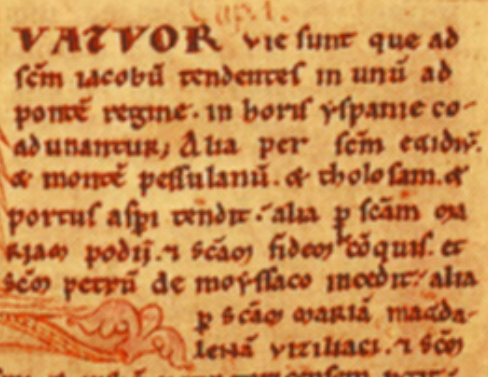 Cap. I.
VATVOR vie sunt que ad
scm̄ iacobū tendentes in unū ad
pontē regine. in horis yspanie co-
adunantur; Alia per scm̄ egidiū.
& montē pessulanū. & tholosam. &
portus aspi tendit. alia ꝑ scām ma
riam podij. ⁊ scām fidem cōquis. et
scm̄ petrū de moyssaco incedit. alia
ꝑ scām mariā magda-
lenā viziliaci. ⁊ scm̄